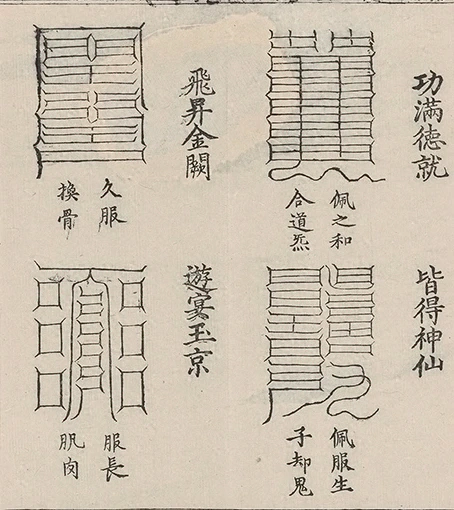 功滿德就
佩之和
合道炁
飛昇金闕
久服
換骨
皆得神仙
佩服生
子却鬼
遊宴玉京
服長
肌肉